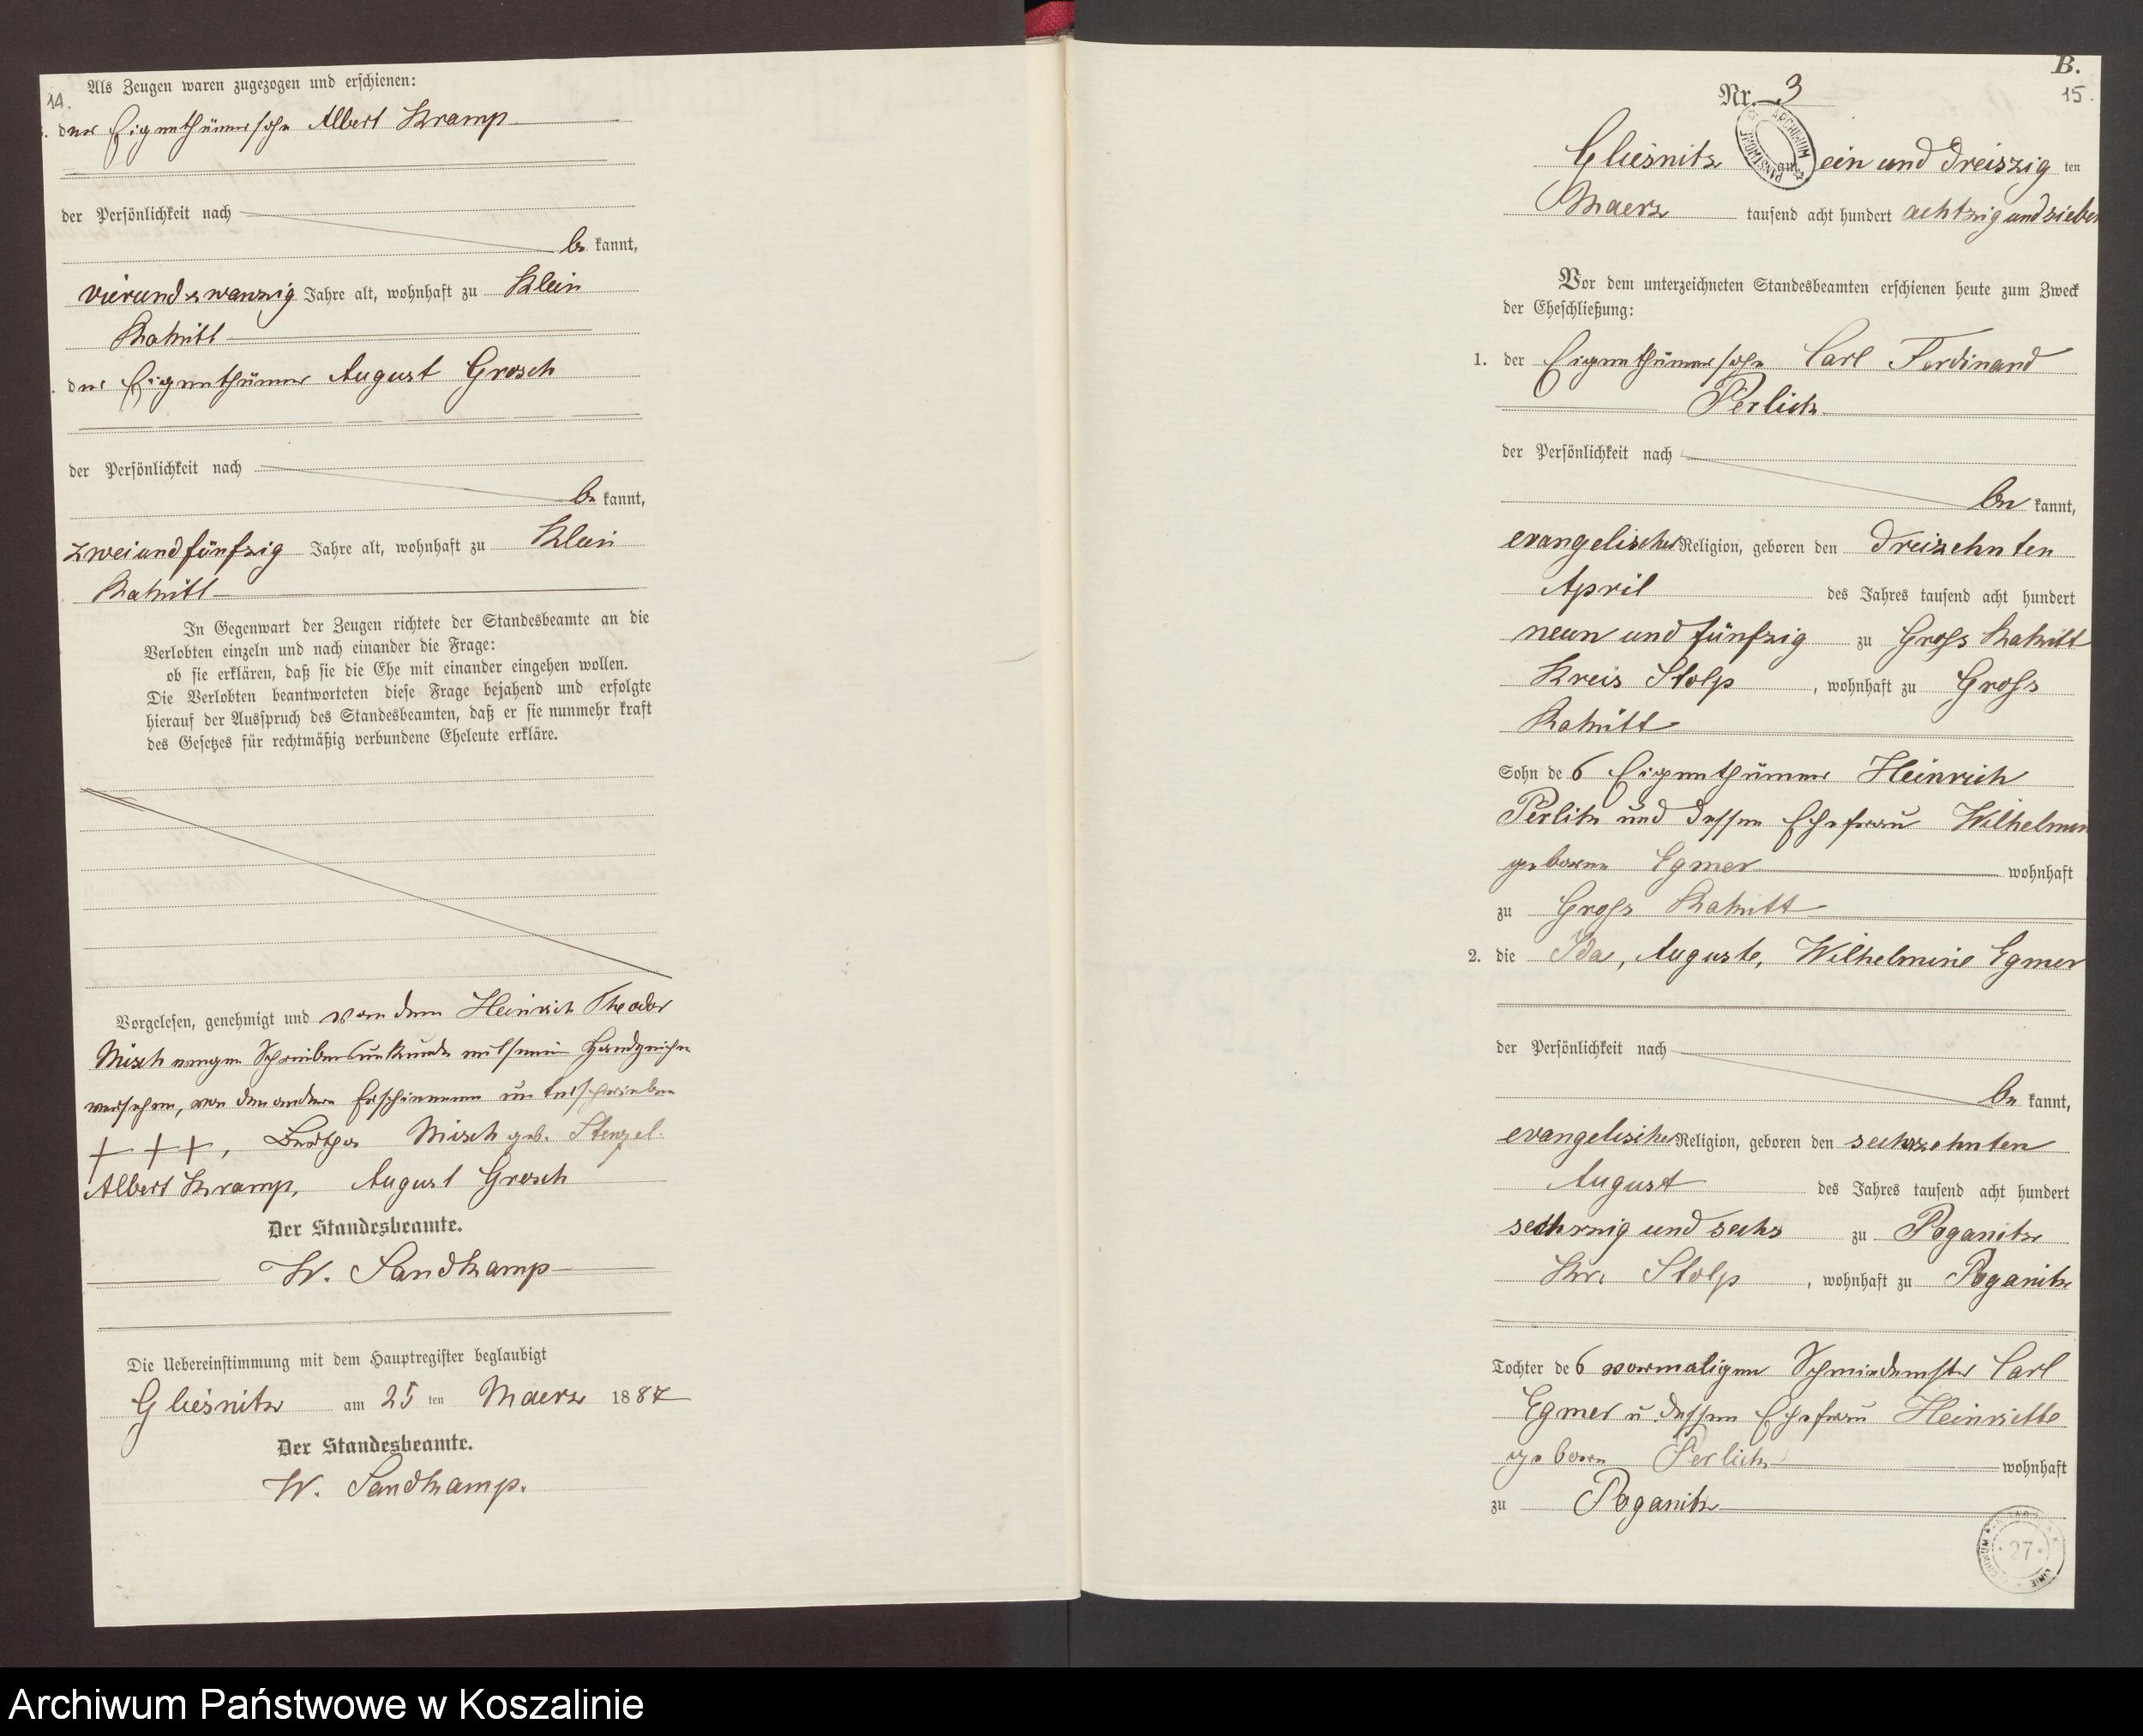 14.
Als Zeugen waren zugezogen und erschienen:
der Eigenthümersohn Albert Kramp
der Persönlichkeit nach
be kannt,
vierundzwanzig Jahre alt, wohnhaft zu Klein
Rakitt
der Eigenthümer August Grosch
der Persönlichkeit nach
be kannt,
zweiundfünfzig Jahre alt, wohnhaft zu Klein
Rakitt
In Gegenwart der Zeugen richtete der Standesbeamte an die
Verlobten einzeln und nach einander die Frage:
ob sie erklären, daß sie die Ehe mit einander eingehen wollen.
Die Verlobten beantworteten diese Frage bejahend und erfolgte
hierauf der Ausspruch des Standesbeamten, daß er sie nunmehr kraft
des Gesetzes für rechtmäßig verbundene Eheleute erkläre.
Vorgelesen, genehmigt und von dem Heinrich Theodor
Misch wegen Schreibensunkunde mit seinem Handzeichen
versehen, von den andern Erschienenen unterschrieben
+ + +, Bertha Misch geb. Stenzel.
Albert Kramp, August Grosch
Der Standesbeamte.
W. Sandkamp
Die Uebereinstimmung mit dem Hauptregister beglaubigt
Gliesnitz am 25 ten Maerz 1887
Der Standesbeamte.
W. Sandkamp.
B.
15.
Nr. 3
ARCHIWUM
Gliesnitz am ein und dreiszig ten
Maerz tausend acht hundert achtzig und sieben
Vor dem unterzeichneten Standesbeamten erschienen heute zum Zweck
der Eheschließung:
1. der Eigenthümersohn Carl Ferdinand
Perlich
der Persönlichkeit nach
be kannt,
evangelischer Religion, geboren den dreizehnten
April des Jahres tausend acht hundert
neun und fünfzig zu Gross Rakitt
Kreis Stolp, wohnhaft zu Gross
Rakitt
Sohn des Eigenthümer Heinrich
Perlitz und dessen Ehefrau Wilhelmin
geborene Egmer wohnhaft
zu Gross Rakitt
2. die Ida, Auguste, Wilhelmine Egmer
der Persönlichkeit nach
be kannt,
evangelischer Religion, geboren den sechszehnten
August des Jahres tausend acht hundert
sechzig und sechs zu Poganitz
Kr. Stolp, wohnhaft zu Poganitz
Tochter des vormaligen Schmiedemstr Carl
Egmer u. dessen Ehefrau Heinriette
geboren Perlich wohnhaft
zu Poganitz
27
Archiwum Państwowe w Koszalinie